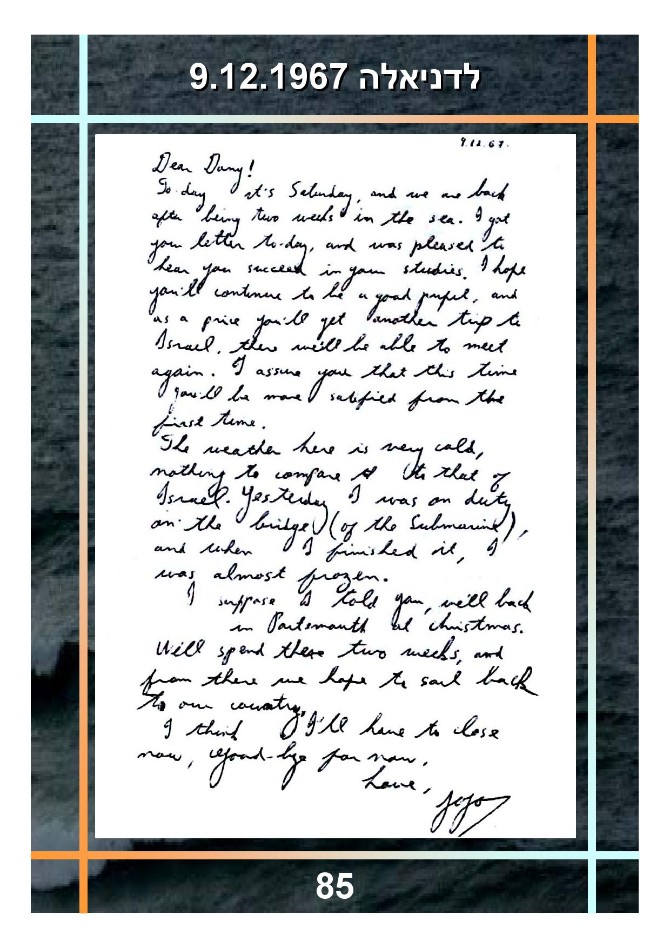 לדניאלה 9.12.1967
9.12.67.
Dear Dany!
To-day it's Saturday, and we are back
after being two weeks in the sea. I got
your letter to-day, and was pleased to
hear you succeed in your studies. I hope
you'll continue to be a good pupil, and
as a price you'll get another trip to
Israel, there we'll be able to meet
again. I assure you that this time
you'll be more satisfied from the
first time.
The weather here is very cold,
nothing to compare to that of
Israel. Yesterday I was on duty
on the bridge (of the Submarine),
and when I finished it, I
was almost frozen.
I suppose I told you, we'll back
in Portsmouth at christmas.
We'll spend there two weeks, and
from there we hope to sail back
to our country.
I think I'll have to close
now, Good-bye for now,
Love,
Jojo
85